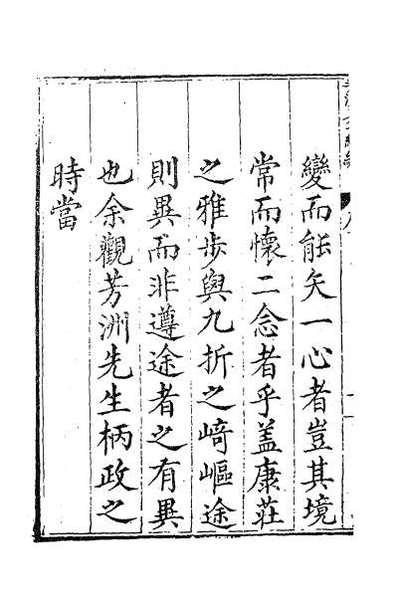 變而能矢一心者豈其境
常而懷二念者乎蓋康莊
之雅步與九折之﨑嶇途
則異而非遵途者之有異
也余觀芳洲先生柄政之
時當